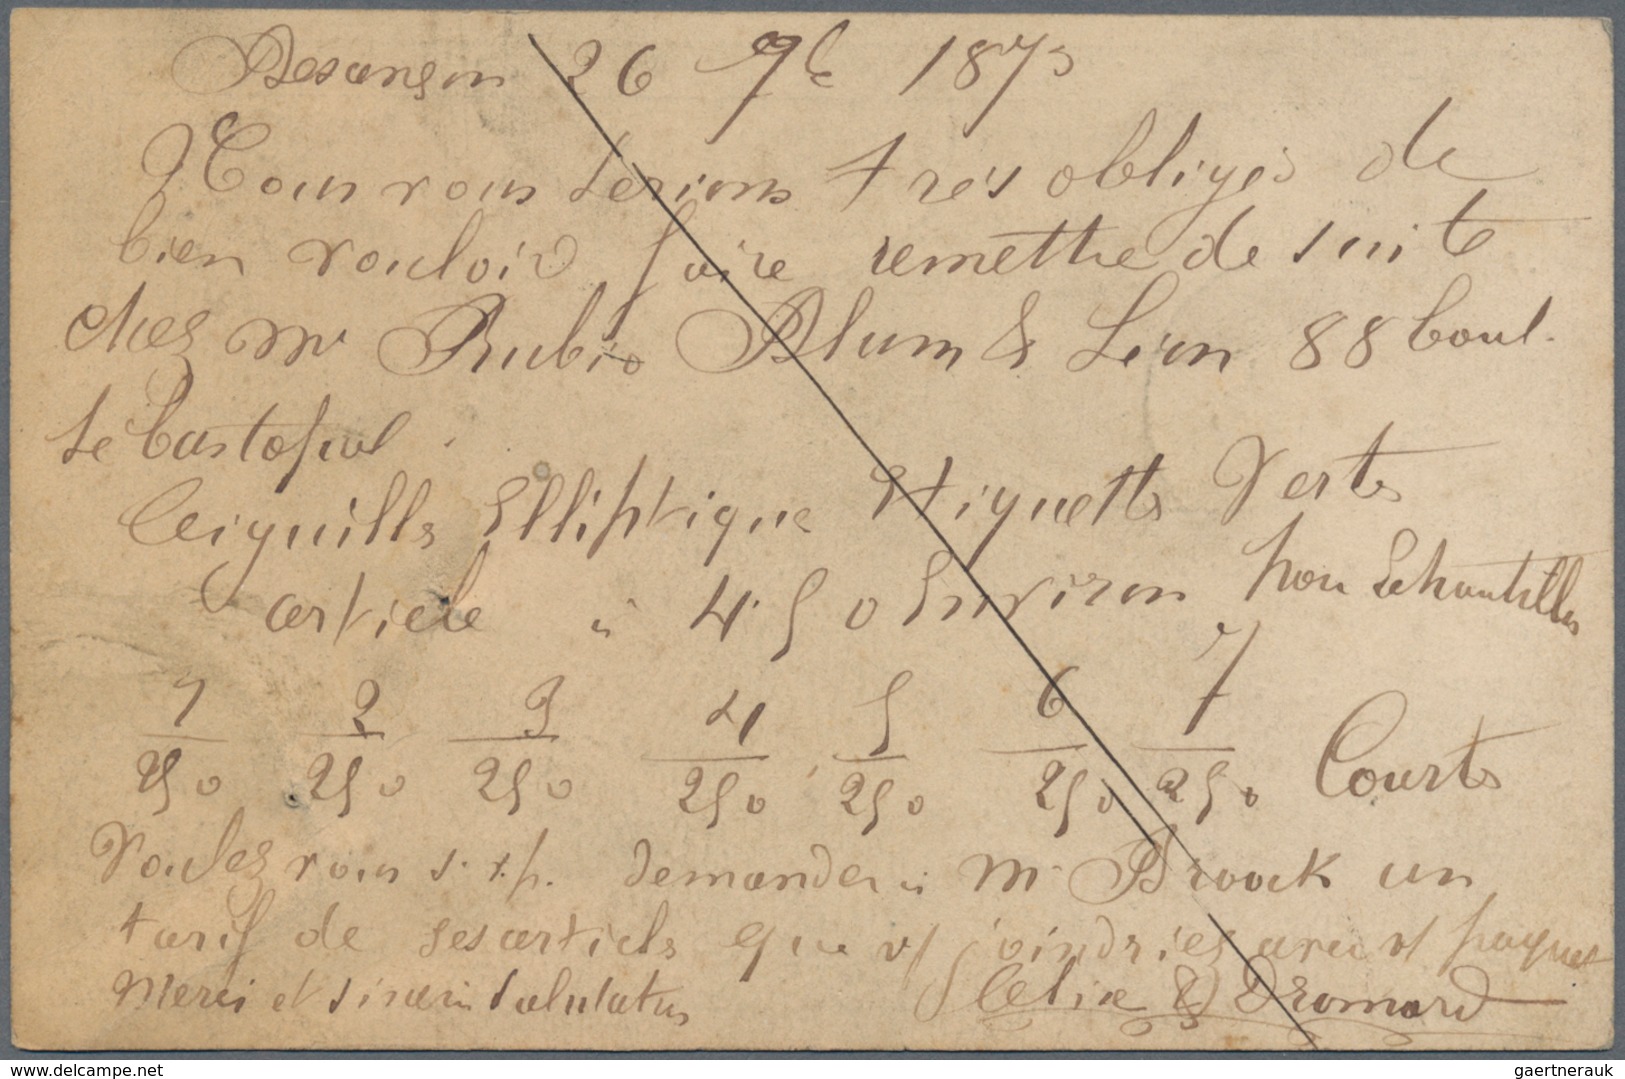 Besançon 26 9b 1873
Nous vous serions très obligés de
bien vouloir faire remettre de suite
chez Mr Rubio Blum & Léon 88 boul.
Sebastopol.
Aiguills Elliptique Etiquetts Verts
article à 4.50 Environ pou Echantills
1 2 3 4 5 6 7
250 250 250 250 250 250 250 Courts
Voulez vous s.v.p. demander à Mr Broock un
tarif de ses articls que vs joindries avec vs paquet
Merci et sincère salutatns
& Dromard
delcampe.net
gaertnerauk